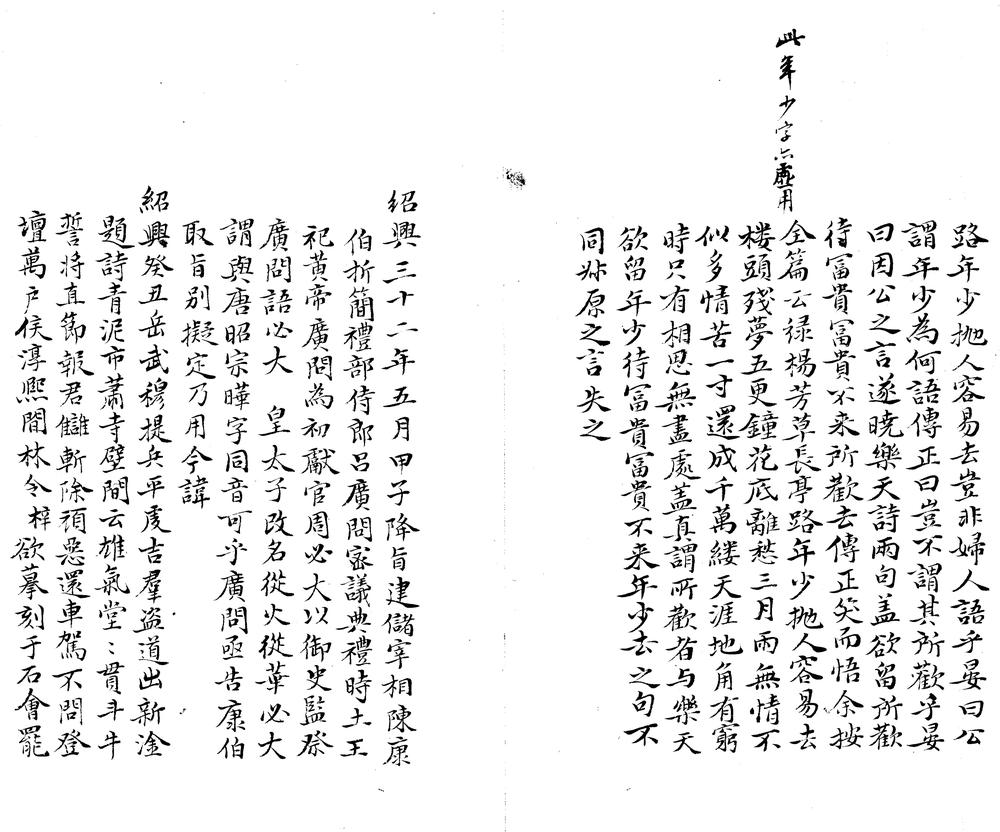 此年少字亦虛用
路年少抛人容易去豈非婦人語乎晏曰公
謂年少為何語傳正曰豈不謂其所歡乎晏
曰因公之言遂曉樂天詩兩句盖欲留所歡
待富貴冨貴不来所歡去傳正笑而悟余按
全篇云禄楊芳草長亭路年少抛人容易去
楼頭殘夢五更鐘花底離愁三月雨無情不
似多情苦一寸還成千萬縷天涯地角有窮
時只有相思無盡處盖真謂所歡者与樂天
欲留年少待冨貴冨貴不来年少去之句不
同叔原之言失之
紹興三十二年五月甲子降旨建儲宰相陳康
伯折簡禮部侍郎吕廣問宻議典禮時土王
祀黄帝廣問為初獻官周必大以御史監祭
廣問語必大 皇太子改名從火從華必大
謂與唐昭宗曄字同音可乎廣問亟告康伯
取旨别擬定乃用今諱
紹興癸丑岳武穆提兵平䖍吉羣盗道出新淦
題詩青泥市蕭寺壁間云雄氣堂〻貫斗牛
誓將直節報君讎斬除頑惡還車駕不問登
壇萬戶侯淳熙間林令梓欲摹刻于石會罷